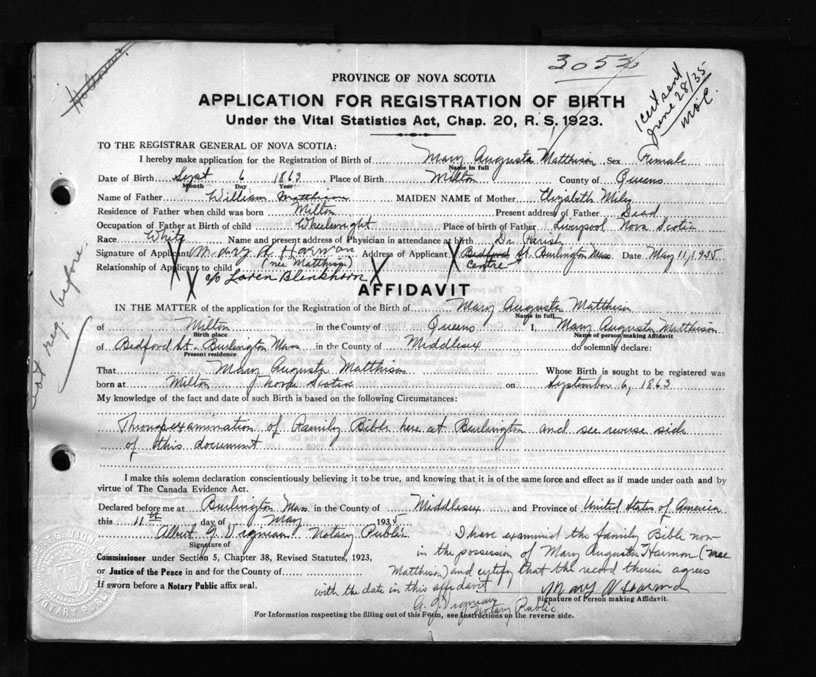 3053
Cert sent
June 28/35
PROVINCE OF NOVA SCOTIA
APPLICATION FOR REGISTRATION OF BIRTH
Under the Vital Statistics Act, Chap. 20, R. S. 1923.
TO THE REGISTRAR GENERAL OF NOVA SCOTIA:
I hereby make application for the Registration of Birth of Mary Augusta Matthison Sex Female
Name in full
Date of Birth Sept 6 1863 Place of Birth Milton County of Queens
Month Day Year
Name of Father William Matthison MAIDEN NAME of Mother Elizabeth
Residence of Father when child was born Milton Present address of Father Dead
Occupation of Father at Birth of child Wheelwright Place of birth of Father Liverpool Nova Scotia
Race White Name and present address of Physician in attendance at birth Dr. Parish
Signature of Applicant Mary A Harmon Address of Applicant Bedford St. Burlington Mass. Date May 11, 1935
(nee Matthison) Centre
Relationship of Applicant to child
c/o Loren Blenkhorn
AFFIDAVIT
not reg. before.
IN THE MATTER of the application for the Registration of the Birth of Mary Augusta Matthison
Name in full
of Milton in the County of Queens I, Mary Augusta Matthison
Birth place Name of person making Affidavit
of Bedford St. Burlington Mass in the County of Middlesex do solemnly declare:
Present residence
That Mary Augusta Matthison Whose Birth is sought to be registered was
born at Milton Nova Scotia on September 6, 1863
My knowledge of the fact and date of such Birth is based on the following Circumstances:
examination of Family Bible here at Burlington and see reverse side
of this document
I make this solemn declaration conscientiously believing it to be true, and knowing that it is of the same force and effect as if made under oath and by
virtue of The Canada Evidence Act.
Declared before me at Burlington Mass in the County of Middlesex and Province of United States of America
this 11th day of May 1935
Albert G. Vigneau Notary Public
Signature of
Commissioner under Section 5, Chapter 38, Revised Statutes, 1923,
or Justice of the Peace in and for the County of
If sworn before a Notary Public affix seal.
I have examined the family Bible now
in the possession of Mary Augusta Harmon (nee
Matthison) and certify that the record therein agrees
with the date in this affidavit
Mary A Harmon
Signature of Person making Affidavit.
Notary Public
For Information respecting the filling out of this Form, see Instructions on the reverse side.